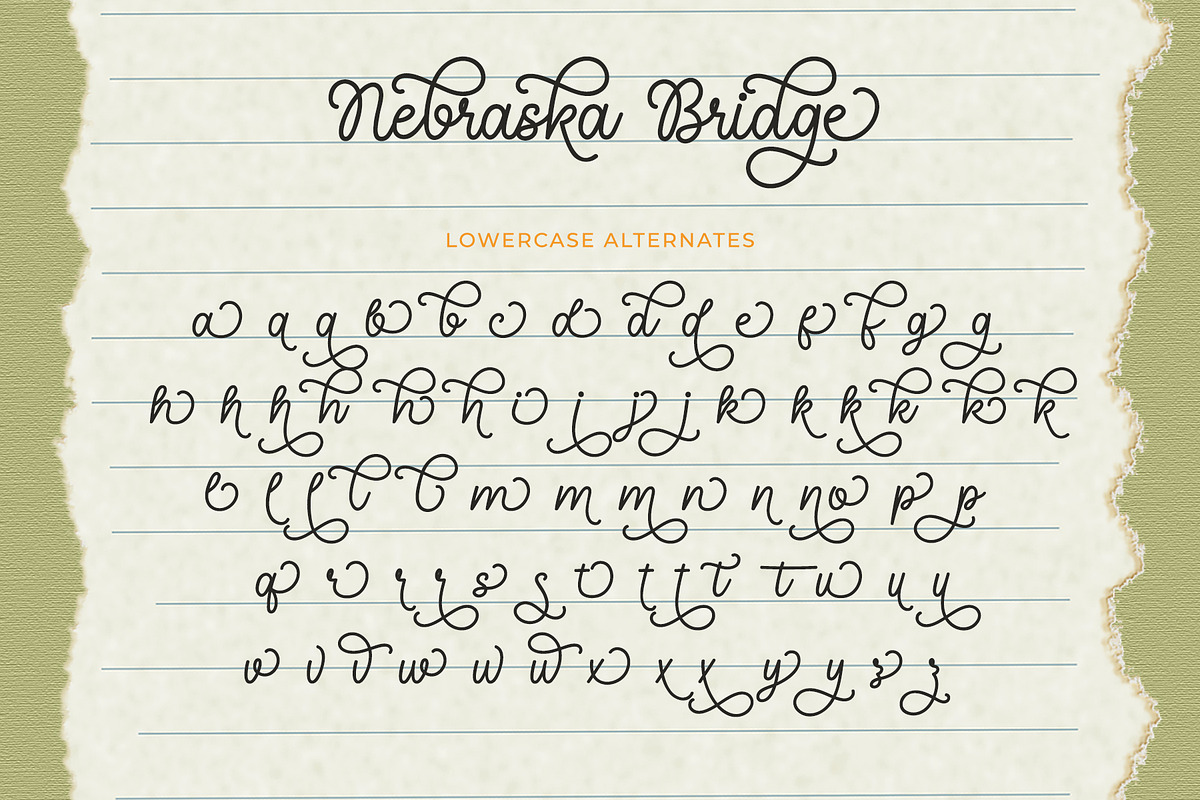 Nebraska Bridge
LOWERCASE ALTERNATES
a a a b b c d d d e f f g g
h h h h h h i i j j k k k k k k
l l l l l m m m n n n o p p
q r r r s s t t t t t u u u
v v v w w w x x x y y z z